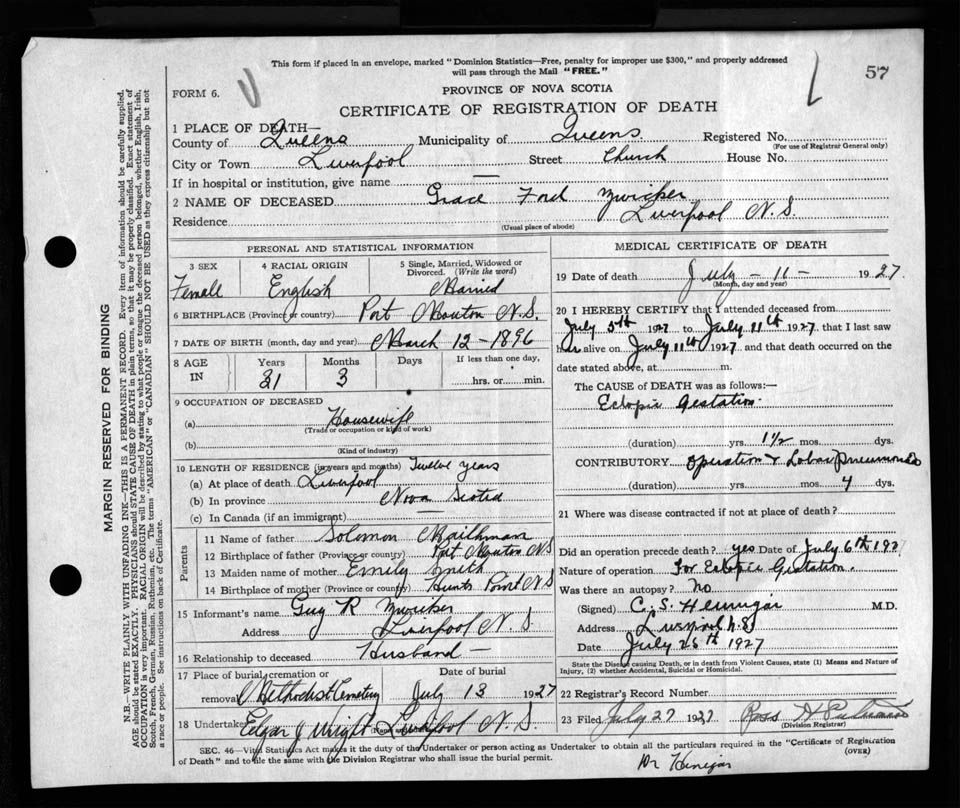 This form if placed in an envelope, marked "Dominion Statistics—Free, penalty for improper use $300," and properly addressed
will pass through the Mail "FREE."
57
FORM 6.
PROVINCE OF NOVA SCOTIA
CERTIFICATE OF REGISTRATION OF DEATH
1 PLACE OF DEATH—
County of Queens Municipality of Queens Registered No.
(For use of Registrar General only)
City or Town Liverpool Street Church House No.
If in hospital or institution, give name —
2 NAME OF DECEASED Grace Ford Zwicker
Residence Liverpool N.S.
(Usual place of abode)
PERSONAL AND STATISTICAL INFORMATION
3 SEX 4 RACIAL ORIGIN 5 Single, Married, Widowed or Divorced. (Write the word)
Female English Married
6 BIRTHPLACE (Province or country) Port Mouton N.S.
7 DATE OF BIRTH (month, day and year) March 12 - 1896
8 AGE IN Years Months Days If less than one day,
31 3 hrs. or min.
9 OCCUPATION OF DECEASED
(a) Housewife
(Trade or occupation or kind of work)
(b)
(Kind of industry)
10 LENGTH OF RESIDENCE (in years and months) Twelve years
(a) At place of death Liverpool
(b) In province Nova Scotia
(c) In Canada (if an immigrant) —
Parents
11 Name of father Solomon
12 Birthplace of father (Province or country) Port Mouton NS
13 Maiden name of mother Emily Smith
14 Birthplace of mother (Province or country) Hunts Point N S
15 Informant's name Guy R Zwicker
Address Liverpool N. S.
16 Relationship to deceased Husband —
17 Place of burial, cremation or removal Date of burial
Methodist Cemetery July 13 1927
18 Undertaker Edgar J Wright Liverpool N. S
MEDICAL CERTIFICATE OF DEATH
19 Date of death July - 11 - 1927.
(Month, day and year)
20 I HEREBY CERTIFY that I attended deceased from
July 5th 1927 to July 11th 1927, that I last saw
her alive on July 11th 1927 and that death occurred on the
date stated above, at m.
The CAUSE of DEATH was as follows:—
Ectopic Gestation.
(duration) yrs. 1½ mos. dys.
CONTRIBUTORY Operation & Lobar Pneumonia
(duration) yrs. mos. 4 dys.
21 Where was disease contracted if not at place of death?
Did an operation precede death? yes Date of July 6th 192
Nature of operation For Ectopic Gestation.
Was there an autopsy? No
(Signed) C. S. Hennigar M.D.
Address Liverpool N.S
Date July 26th 1927
State the Disease causing Death, or in death from Violent Causes, state (1) Means and Nature of
Injury, (2) whether Accidental, Suicidal or Homicidal.
22 Registrar's Record Number
23 Filed July 27 1927 Ross H
(Division Registrar)
SEC. 46—Vital Statistics Act makes it the duty of the Undertaker or person acting as Undertaker to obtain all the particulars required in the "Certificate of Registration
of Death" and to file the same with the Division Registrar who shall issue the burial permit. (OVER)
Dr Henigar
MARGIN RESERVED FOR BINDING
N.B.—WRITE PLAINLY WITH UNFADING INK—THIS IS A PERMANENT RECORD. Every item of information should be carefully supplied.
AGE should be stated EXACTLY. PHYSICIANS should STATE CAUSE OF DEATH in plain terms, so that it may be properly classified. Exact statement of
OCCUPATION is very important. RACIAL ORIGIN will be described by stating to what people or tongue the deceased person belonged, whether English, Irish,
Scotch, French, German, Russian, Ruthenian, etc. The terms "AMERICAN" or "CANADIAN" SHOULD NOT BE USED as they express citizenship but not
a race or people. See instructions on back of Certificate.